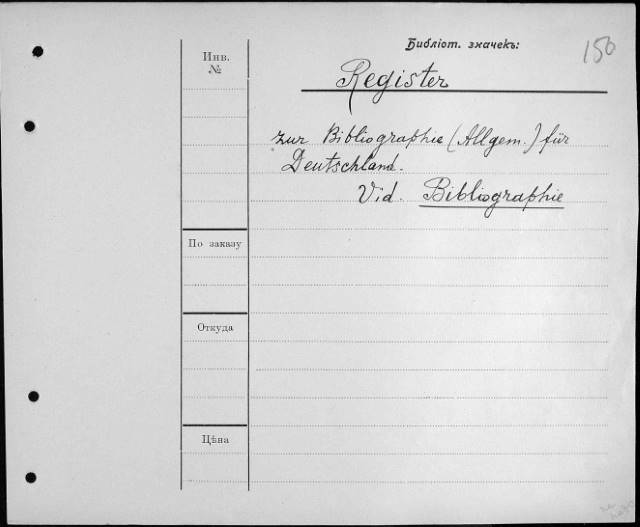 Библіот. значекъ:
150
Инв.
№
Register
zur Bibliographie (Allgem.) für
Deutschland.
Vid. Bibliographie
По заказу
Откуда
Цѣна